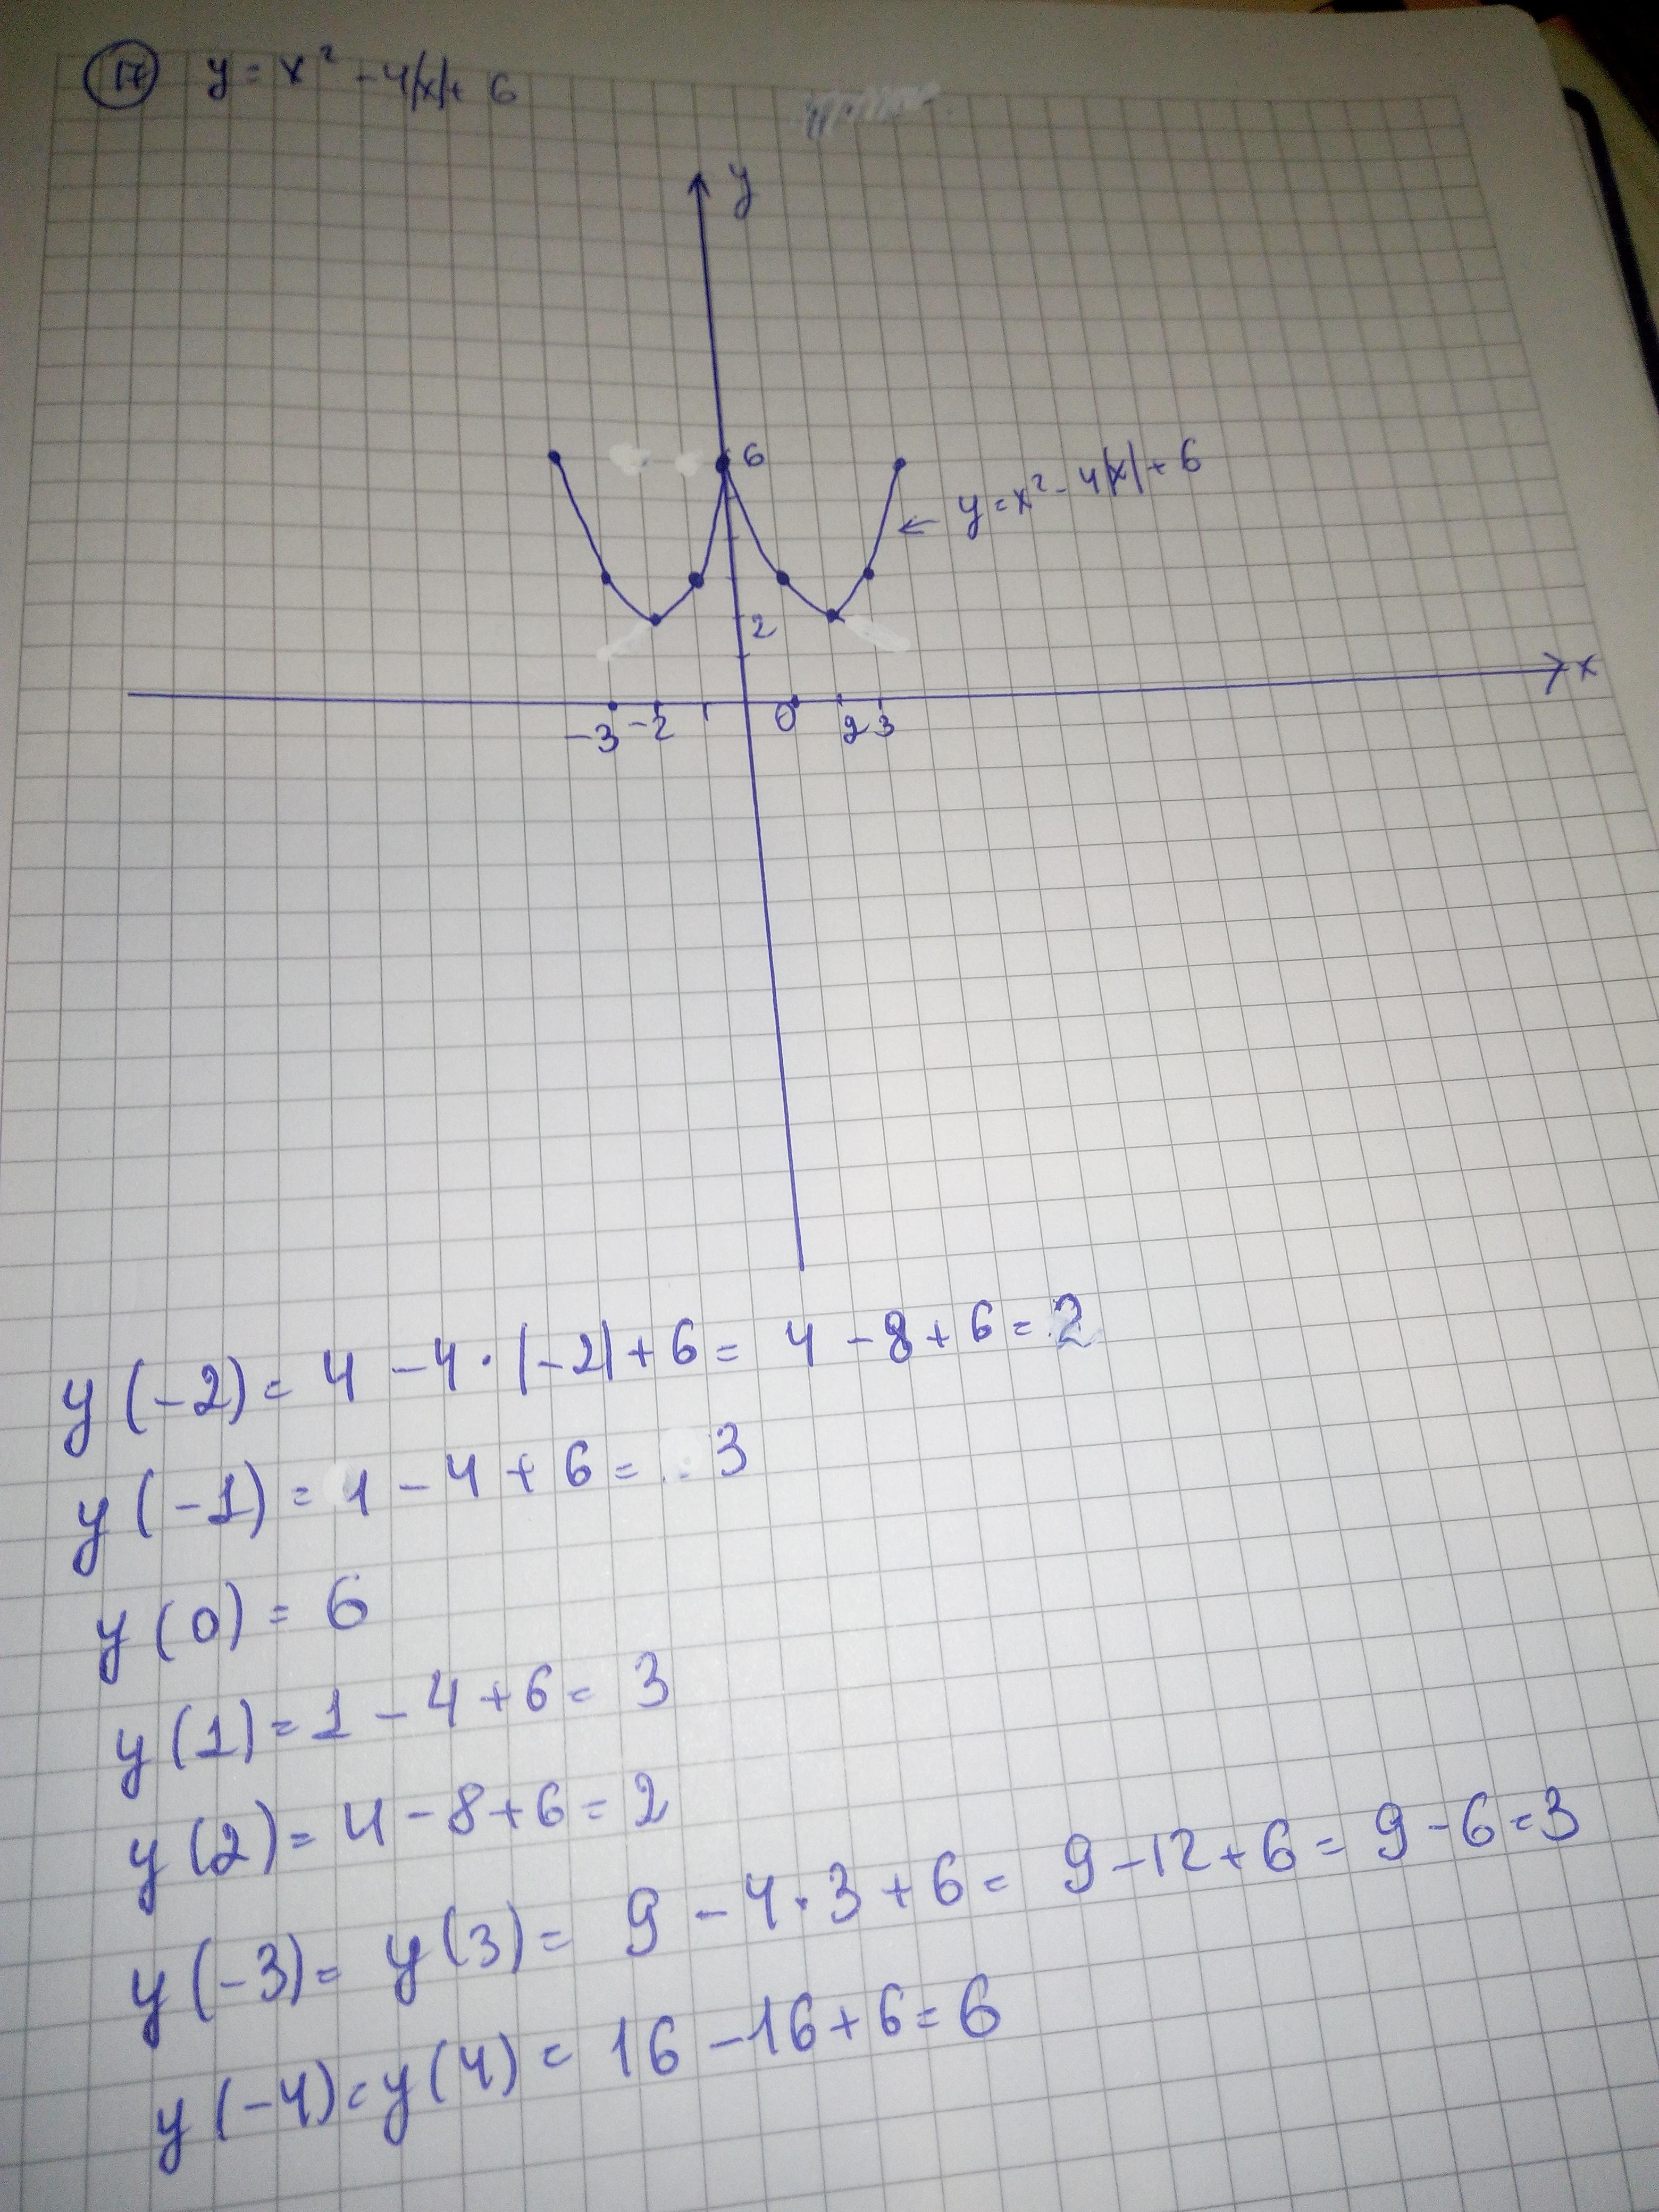 17 y = x² - 4|x| + 6
y
6
← y = x² - 4|x| + 6
2
x
-3 -2 0 2 3
y(-2) = 4 - 4 · |-2| + 6 = 4 - 8 + 6 = 2
y(-1) = 1 - 4 + 6 = 3
y(0) = 6
y(1) = 1 - 4 + 6 = 3
y(2) = 4 - 8 + 6 = 2
y(-3) = y(3) = 9 - 4 · 3 + 6 = 9 - 12 + 6 = 9 - 6 = 3
y(-4) = y(4) = 16 - 16 + 6 = 6